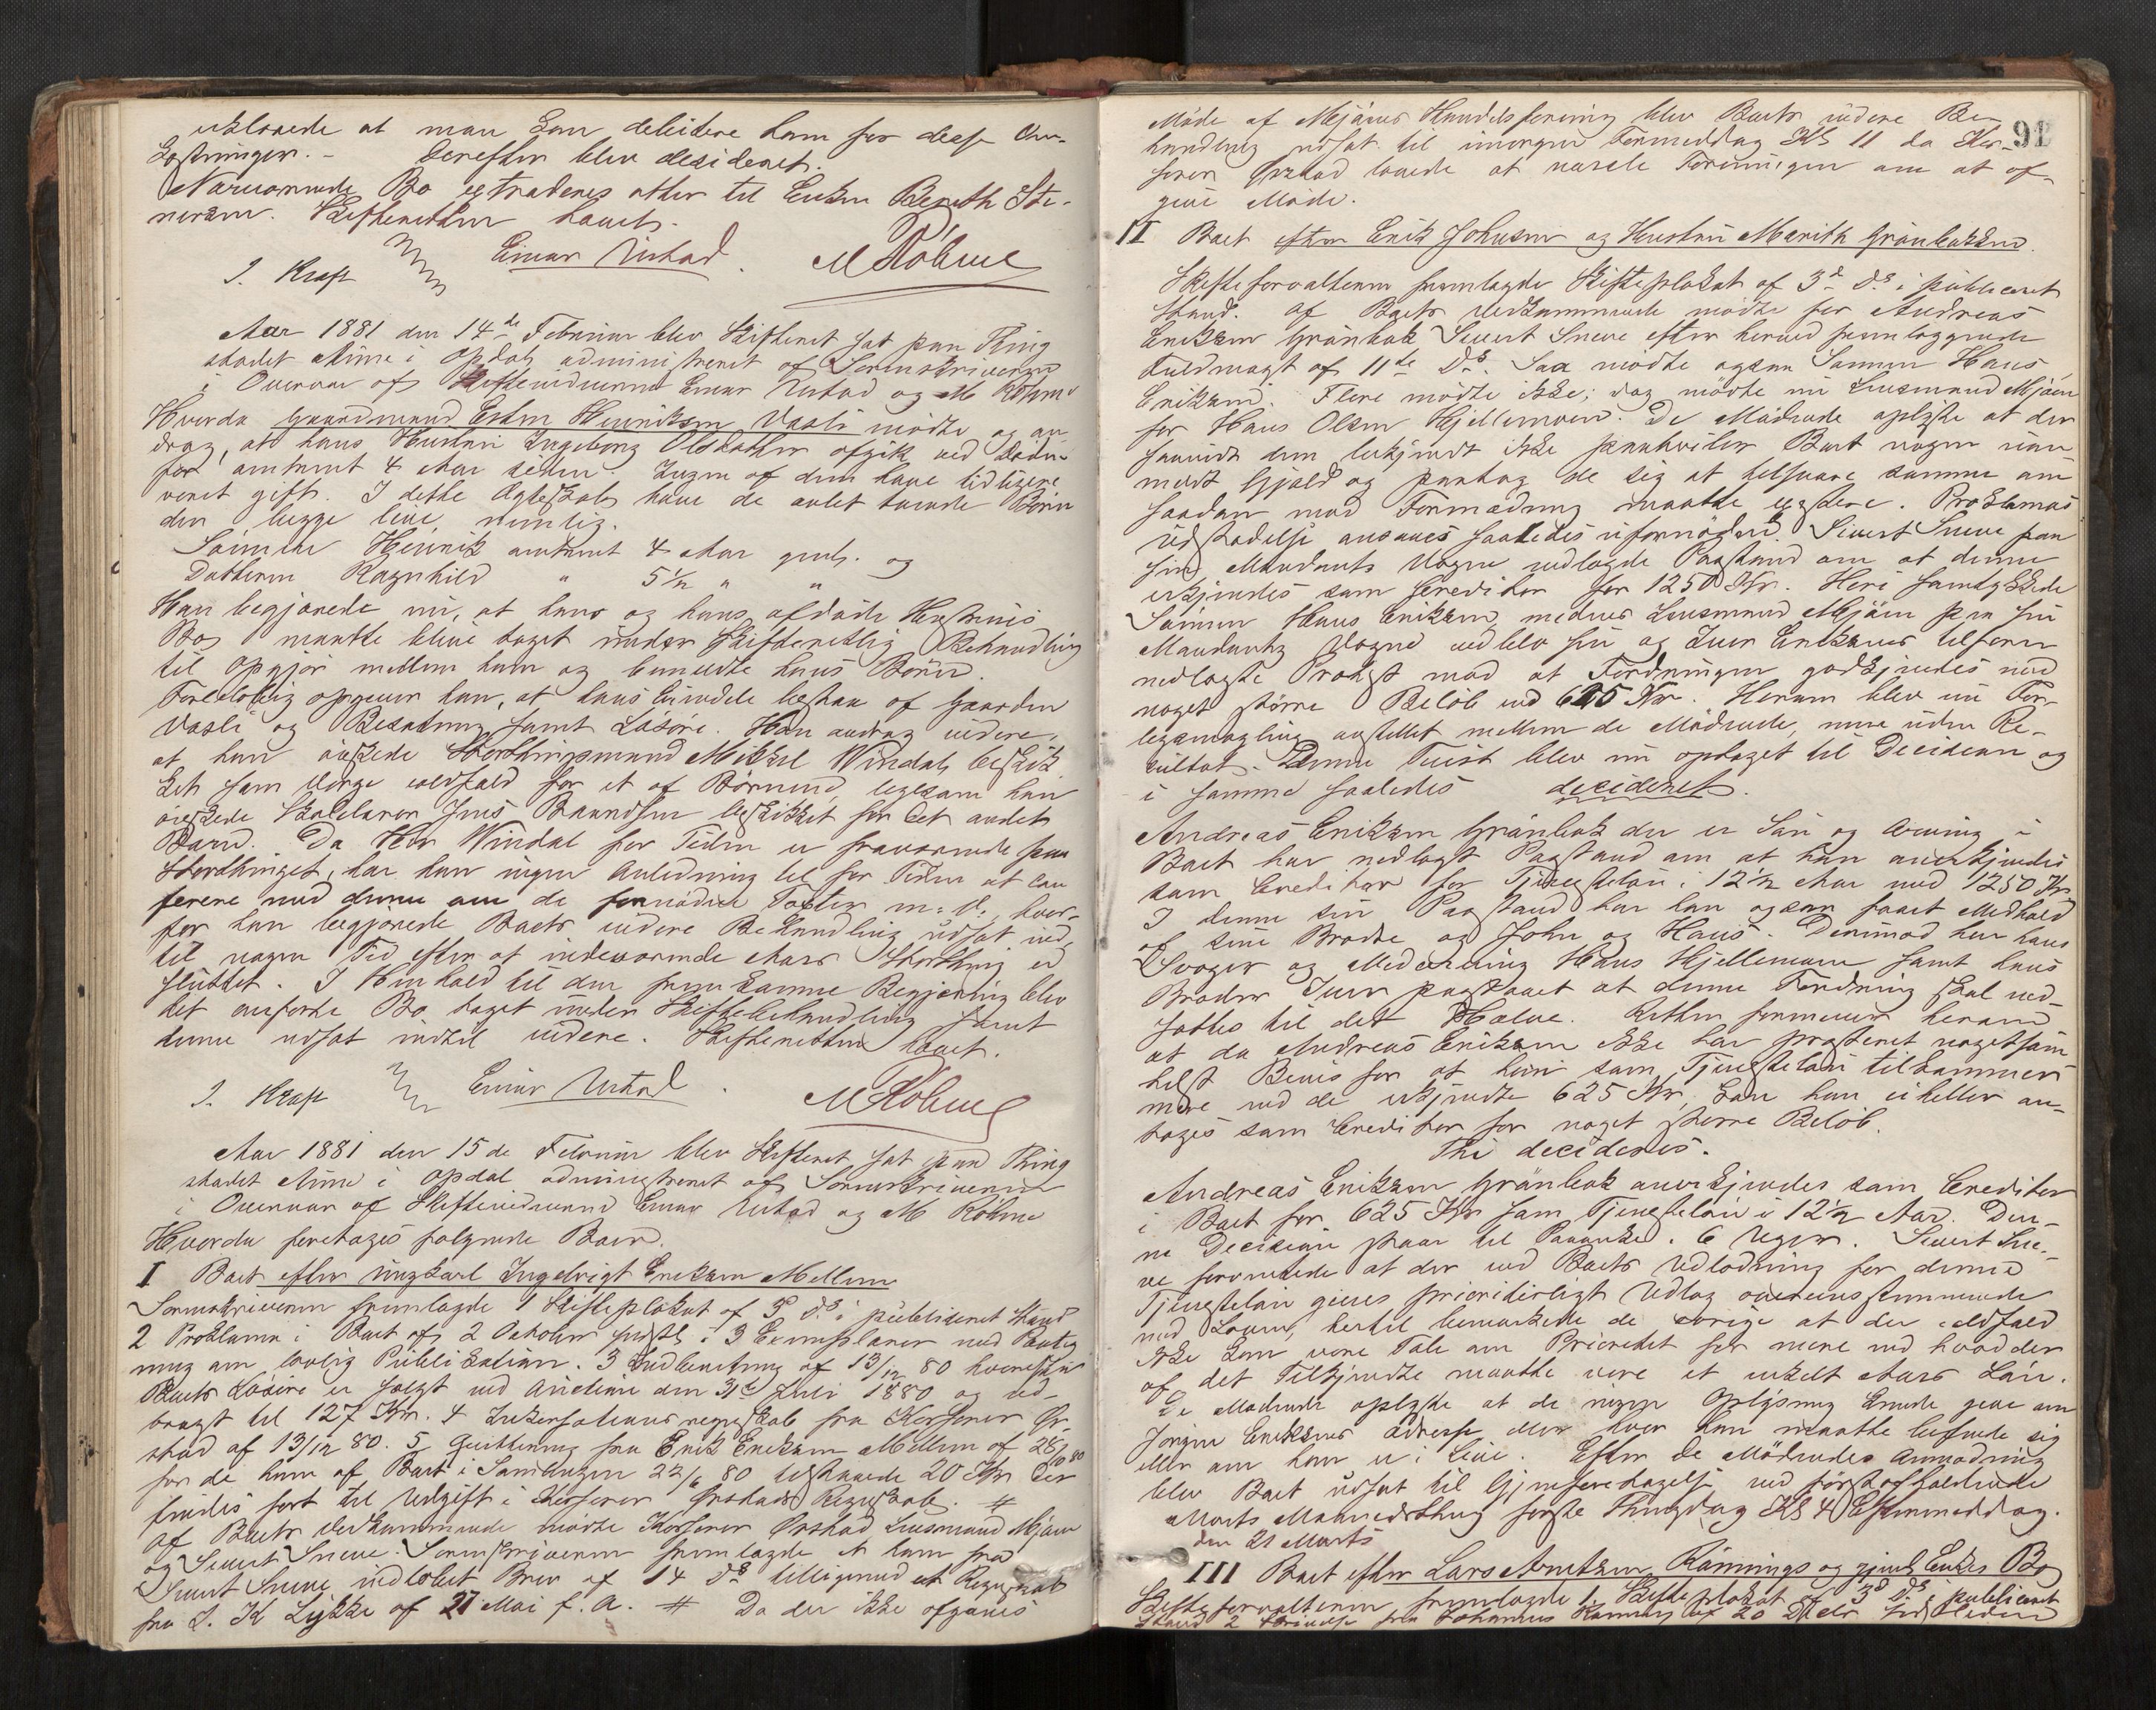 erklærede at man kan debitere ham for disse Om-
kostninger. – Derefter blev desideret.
Nærværende Bo extraderes atter til Enken Bereth Ste-
nersen. Skifteretten hævet.
J. Kraft Einar Ustad. M Röhme
Aar 1881 den 14de Februar blev Skifteret sat paa Thing
stedet Aune i Opdal, administreret af Sorenskriveren
i Overvær af Skiftevidnerne Einar Ustad og M Röhme
Hvorda Gaardmand Esten Henriksen Vasli mödte og an
drog, at hans Hustru Ingeborg Olsdatter afgik ved Döden
for omtrent 4 Aar siden. Ingen af dem have tidligere
været gift. I dette Ægteskab have de avlet tvende Börn
der begge leve, nemlig.
Sönnen Henrik omtrent 4 Aar gml. og
Datteren Ragnhild " 5½ " "
Han begjærede nu, at hans og hans afdöde Hustrus
Bo maatte blive taget under Skifteretlig Behandling
til Opgjör mellem ham og benævnte hans Börn.
Foreløbig opgiver han, at hans Eiendele bestaa af Gaarden
Vasli og Besætning samt Lösöre. Han androg videre,
at han önskede Storthingsmand Mikkel Windal beskik
ket som Værge ialdfald for et af Börnene, ligesom han
önskede Skolelærer Jens Baardsen beskikket for det andet
Barn. Da Hr Windal for Tiden er fraværende paa
Storthinget, har han ingen Anledning til for Tiden at con
ferere med denne om de fornödne Taxter m. V., hvor-
for han begjærede Boets videre Behandling udsat ind-
til nogen Tid efter at indeværende Aars Storthing er
sluttet. I Henhold til den fremkomne Begjæring blev
det anförte Bo taget under Skiftebehandling samt
denne udsat indtil videre. Skifteretten hævet.
J. Kraft Einar Ustad. M Röhme
Aar 1881 den 15de Februar blev Skifteret sat paa Thing
stedet Aune i Opdal administreret af Sorenskriveren
i Overvær af Skiftevidnerne Einar Ustad og M Röhme
Hvorda foretoges fölgende Boer.
I Boet efter Ungkarl Ingebrigt Eriksen Mellem
Sorenskriveren fremlagde 1 Skifteplakat af 3 ds i publiceret Stand
2 Proklama i Boet af 2 Oktober sidstl. i 3 Exemplarer med Paateg
ning om lovlig Publikation. 3 Indberetning af 13/12 80 hvorefter
Boets Lösöre er solgt ved Auction den 31te Juli 1880 og ud-
bragt til 127 Kr. 4 Inkassationsregnskab fra Kasserer Ör-
stad af 13/12 80. 5 Quittering fra Erik Eriksen Mellem af 28/10 80
for de ham af Boet i Samlingen 22/6 80 tilstaaede 20 Kr der
findes fört til Udgift i Kasserer Örstads Regnskab. #
Af Boets Vedkommende mödte Kasserer Örstad, Lensmand Mjøen
og Sivert Sneve. Sorenskriveren fremlagde et ham fra
Sivert Sneve indlöbet Brev af 14 ds tilligemed et Regnskab
fra L. K Lykke af 27 Mai f. A. # Da der ikke afgaves
91
Möde af Mjøens Handelsforening blev Boets videre Be-
handling udsat til imorgen Formiddag Kl 11 da Kas-
serer Örstad lovede at varsle Foreningen om at af-
give Möde.
II Boet efter Erik Johnsen og Hustru Marith Grönbakken.
Skifteforvalteren fremlagde Skifteplakat af 3d ds i publiceret
Stand. Af Boets Vedkommende mödte for Andreas
Eriksen Grönbak Sivert Sneve efter herved fremlæggende
Fuldmagt af 11te Ds. Saa mödte ogsaa Sönnen Hans
Eriksen. Flere mödte ikke; dog mödte nu Lensmand Mjøen
for Hans Olsen Hjellemoen. De Mödende oplyste at der
saavidt dem bekjendt ikke paahviler Boet nogen uan-
meldt Gjæld og paatog de sig at tilsvare samme om
saadan mod Formodning maatte existere. Proklamas
Udstedelse ansaaes saaledes ufornöden. Sivert Sneve paa
sin Mandants Vegne nedlagde Paastand om at denne
erkjendes som Creditor for 1250 Kr. Heri samtykkede
Sönnen Hans Eriksen, medens Lensmand Mjöen paa sin
Mandants Vegne vedblev sin og Iver Eriksens tilforn
nedlagte Protest mod at Fordringen godkjendes med
noget större Belöb end 625 Kr. Herom blev nu For-
ligsmægling anstillet mellem de Mödende, men uden Re-
sultat. Denne Tvist blev nu optaget til Decision og
i samme saaledes decideret.
Andreas Eriksen Grönbak der er Sön og Arving i
Boet har nedlagt Paastand om at han anerkjendes
som Creditor for Tjenestelön i 12½ Aar med 1250 Kr
I denne sin Paastand har han ogsaa faaet Medhold
af sine Brødre og John og Hans. Derimod har hans
Svoger og Medarving Hans Hjellemoen samt hans
Broder Iver paastaaet at denne Fordring skal ned-
sættes til det Halve. Retten formener herom
at da Andreas Eriksen ikke har præsteret nogetsom-
helst Bevis for at ham som Tjenestelön tilkommer
mere end de erkjendte 625 Kr, kan han ei heller an-
tages som Creditor for noget större Belöb.
Thi decideres.
Andreas Eriksen Grönbak anerkjendes som Creditor
i Boet for 625 Kr som Tjenestelön i 12½ Aar. Den-
ne Decision staar til Paaanke i 6 Uger. Sivert Sne-
ve formente at der ved Boets Udlodning for denne
Tjenestelön gives prioriterligt Udlæg overensstemmende
med Loven, hertil bemærkede de övrige at der ialdfald
ikke kan være Tale om Prioritet for mere end hvad der
af det Tilkjendte maatte være et enkelt Aars Lön.
De Mödende oplyste at de ingen Oplysning kunde give om
Jörgen Eriksens Adresse eller hvor han maatte befinde sig
eller om han er i Live. Efter de Mödendes Anmodning
blev Boet udsat til Gjenforetagelse ved förstafholdende
Marts Maanedsthing förste Thingdag Kl 4 Eftermiddag.
den 21 Marts
III Boet efter Lars Arntsen Rönnings og gjenl. Enkes Bo
Skifteforvalteren fremlagde 1. Skifteplakat af 3d ds i publiceret
Stand 2 Skrivelse fra Johannes Rönning af 20 Dcbr sidstleden